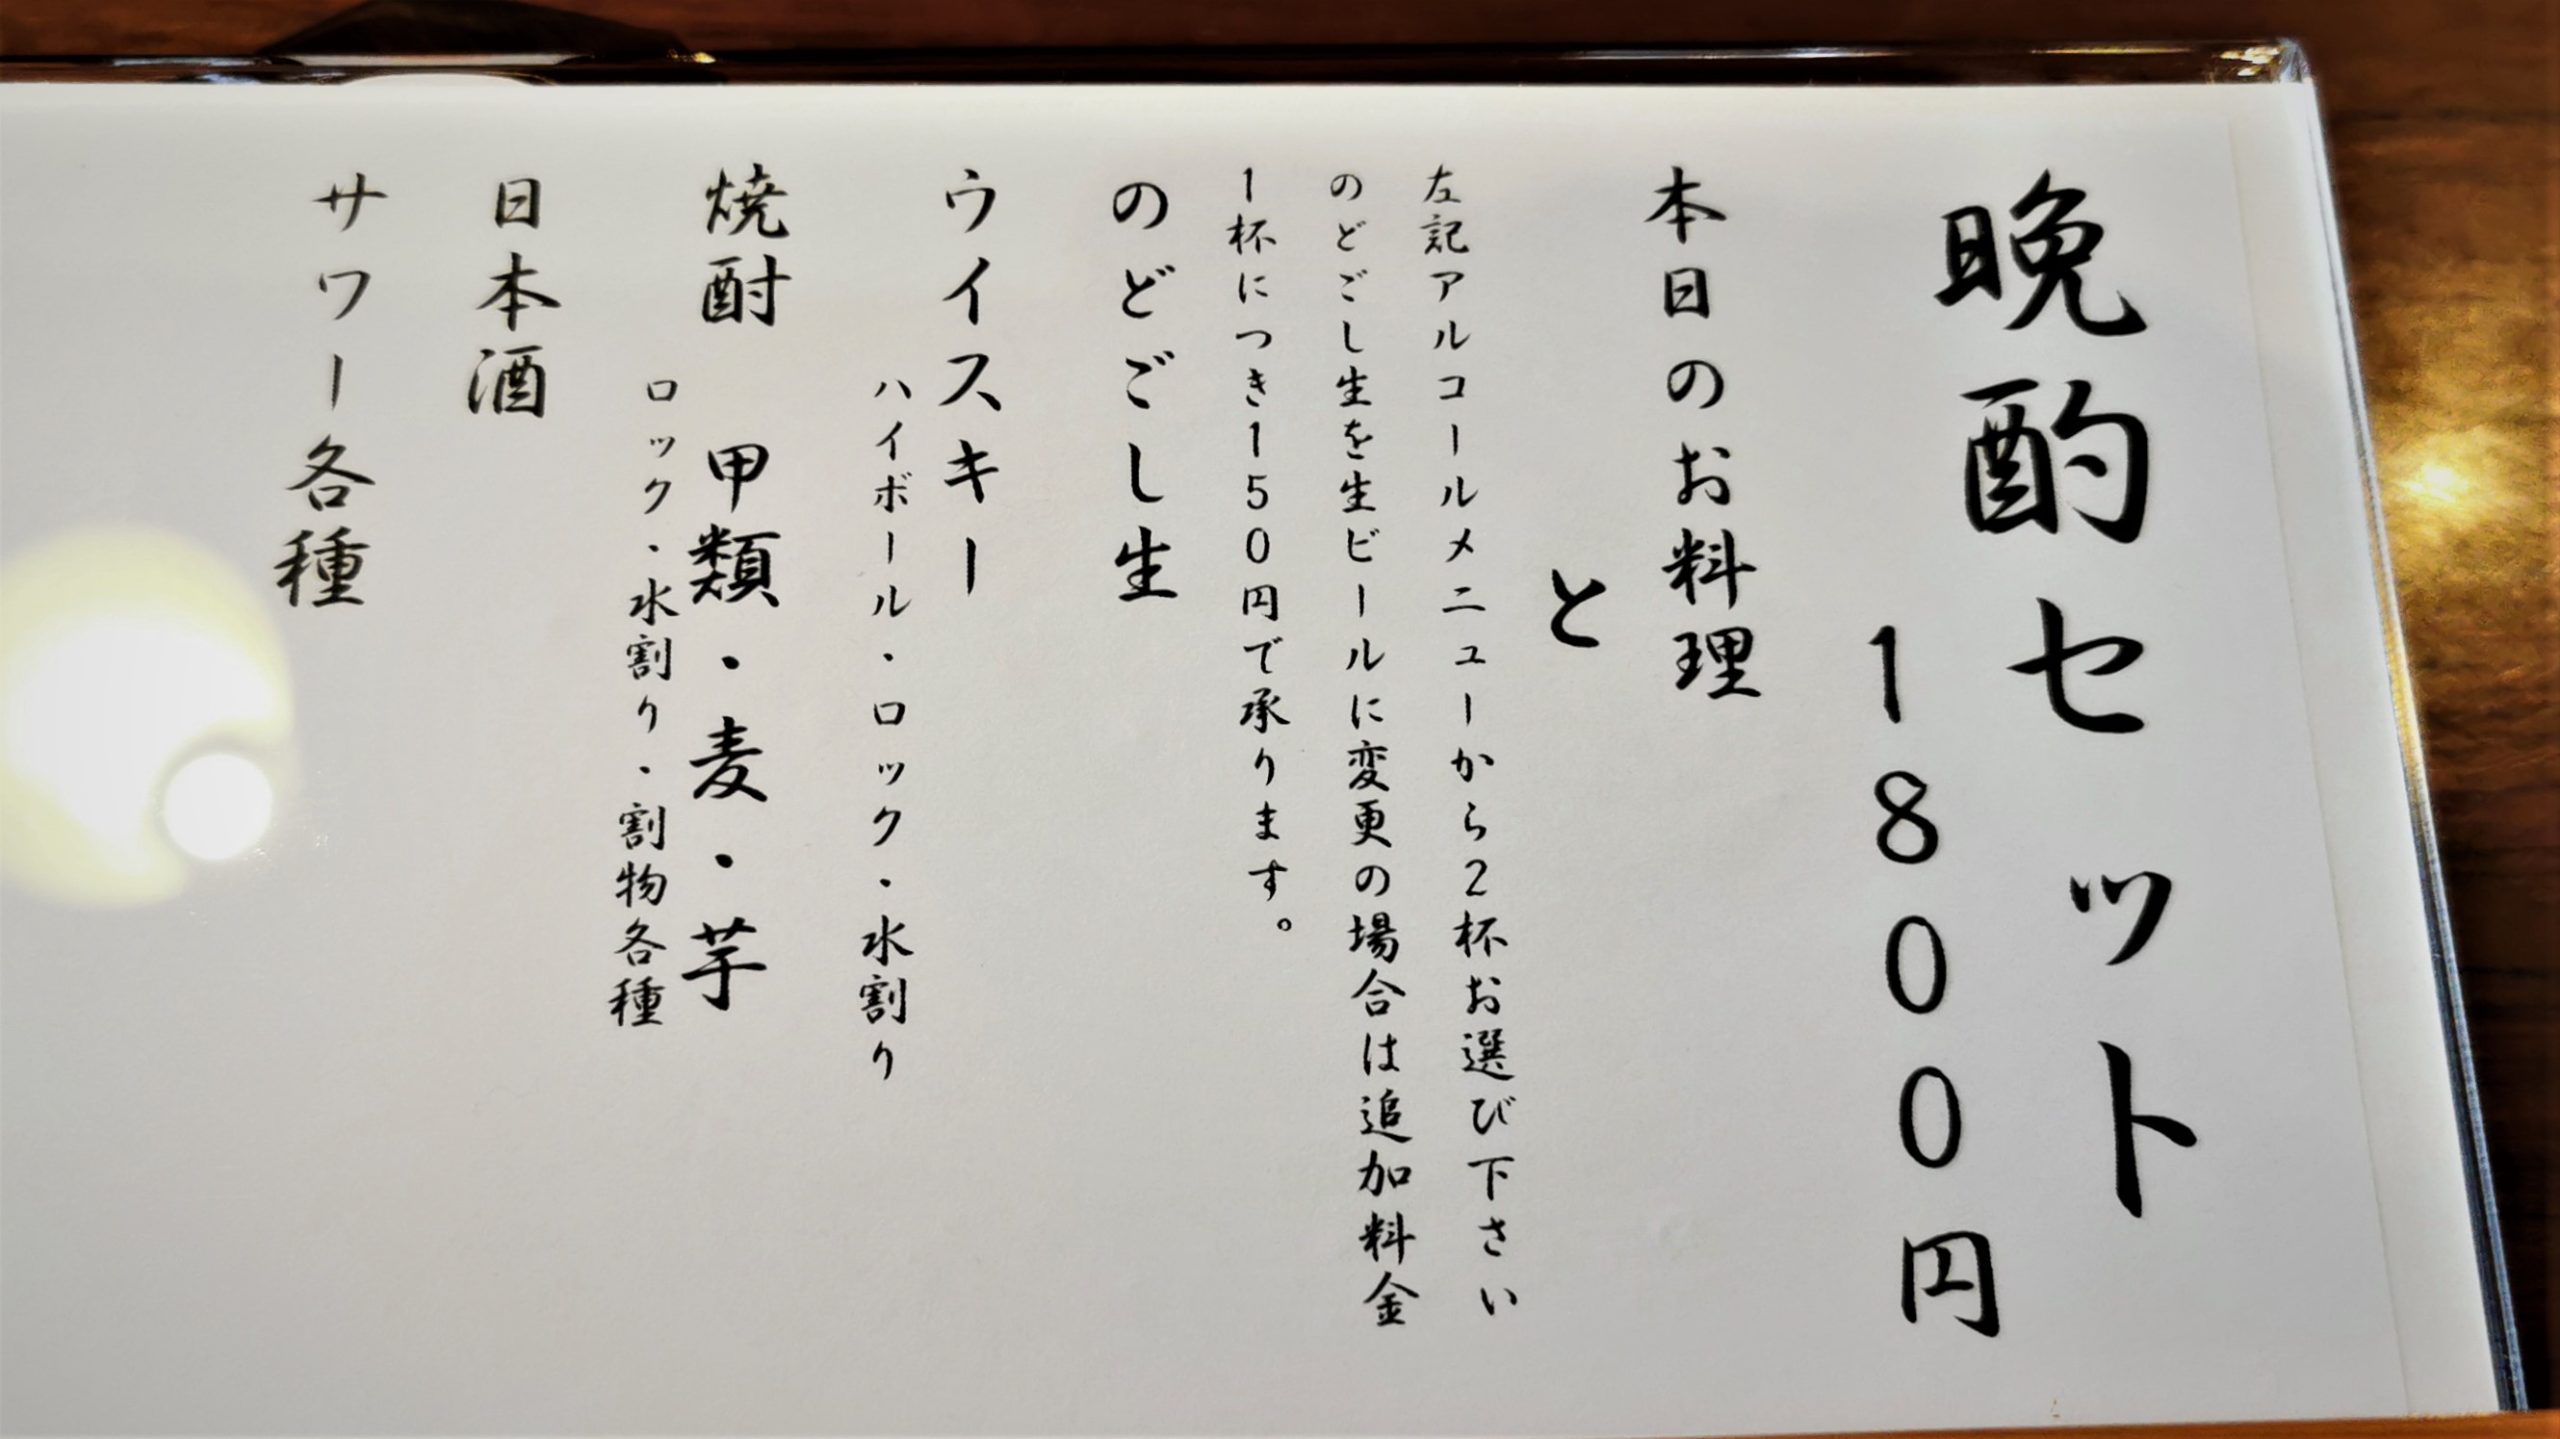 晩酌セット
1800円
本日のお料理
と
左記アルコールメニューから2杯お選び下さい
のどごし生を生ビールに変更の場合は追加料金
1杯につき150円で承ります。
のどごし生
ウイスキー
ハイボール・ロック・水割り
焼酎 甲類・麦・芋
ロック・水割り・割物各種
日本酒
サワー各種